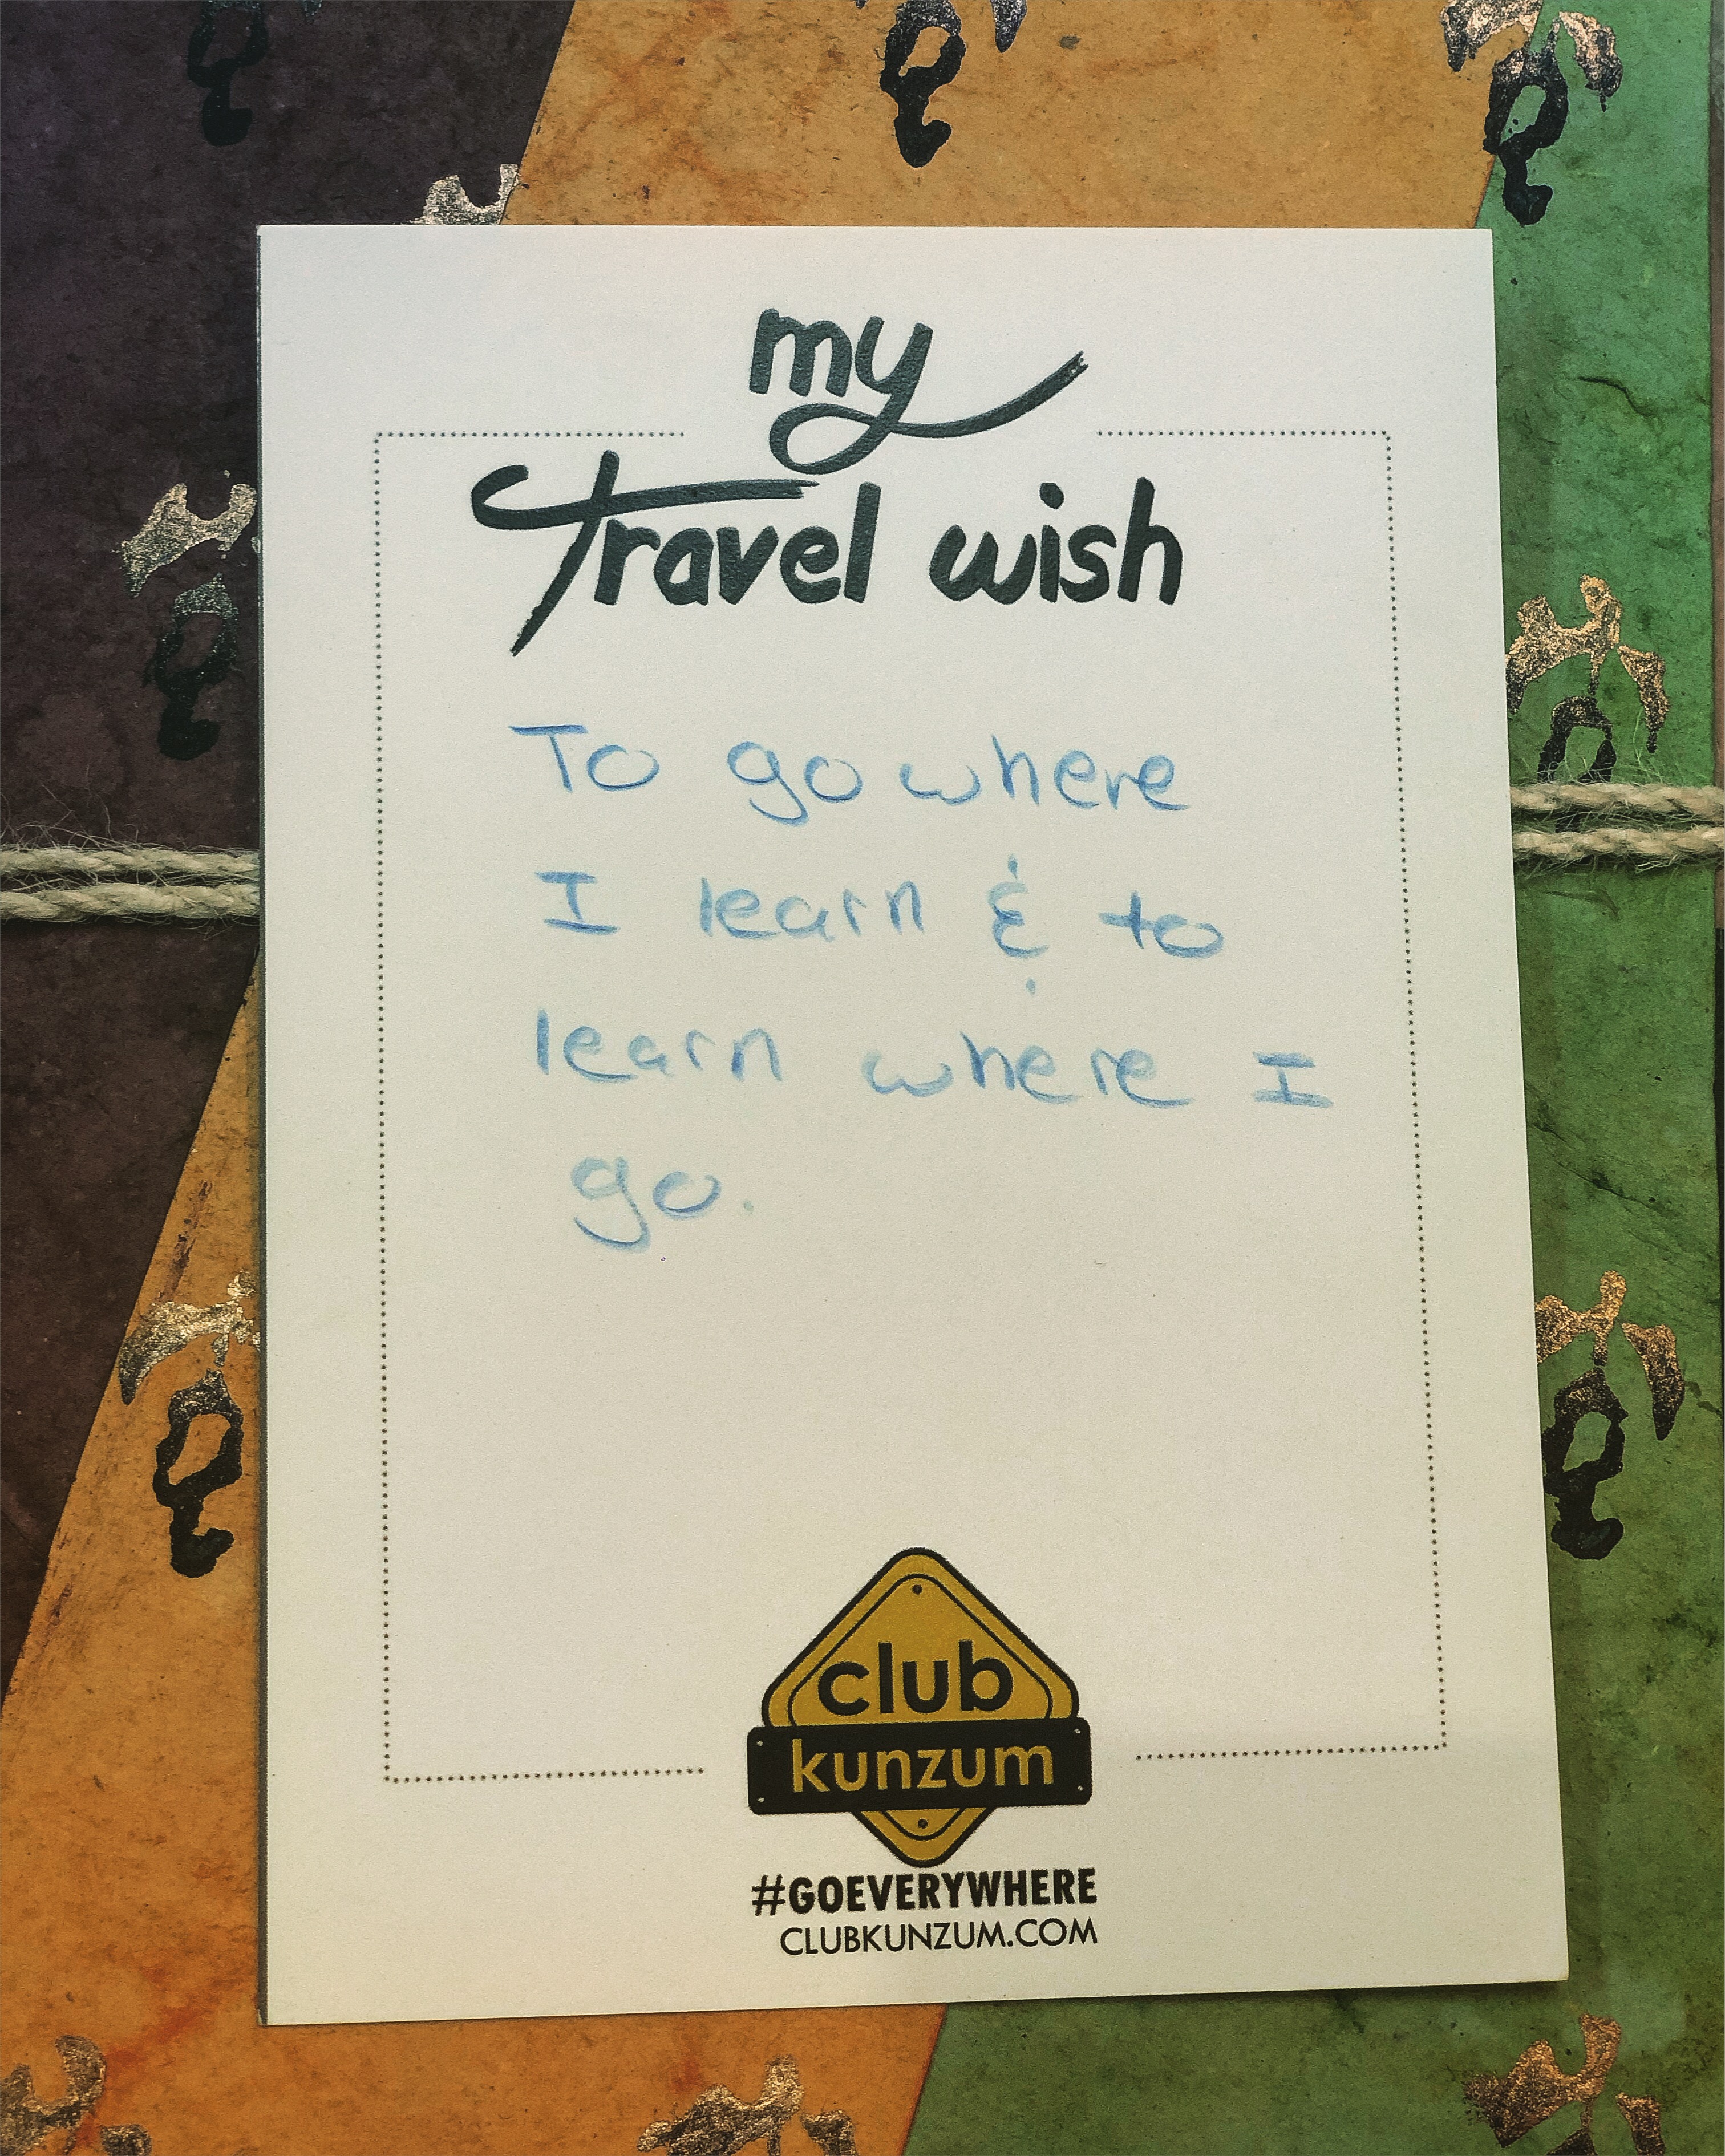 my
travel wish
To go where
I learn & to
learn where I
go.
club
kunzum
#GOEVERYWHERE
CLUBKUNZUM.COM